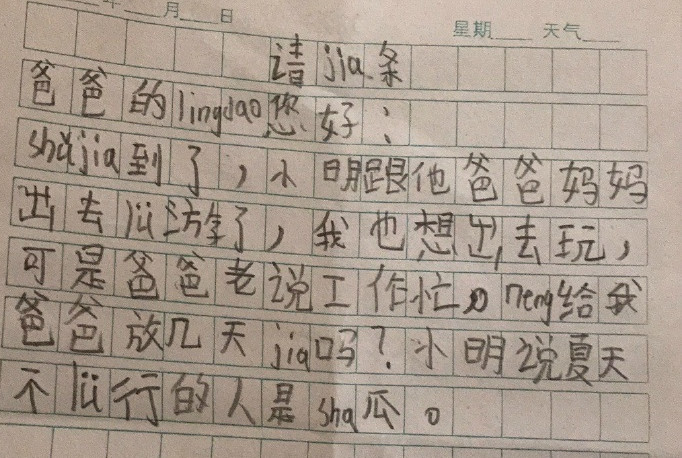 年 月 日 星期 天气
请jia条
爸爸的lingdao您好：
shǔjia到了，小明跟他爸爸妈妈
出去lü游了，我也想出去玩，
可是爸爸老说工作忙。neng给我
爸爸放几天jia吗？小明说夏天
不lü行的人是sha瓜。